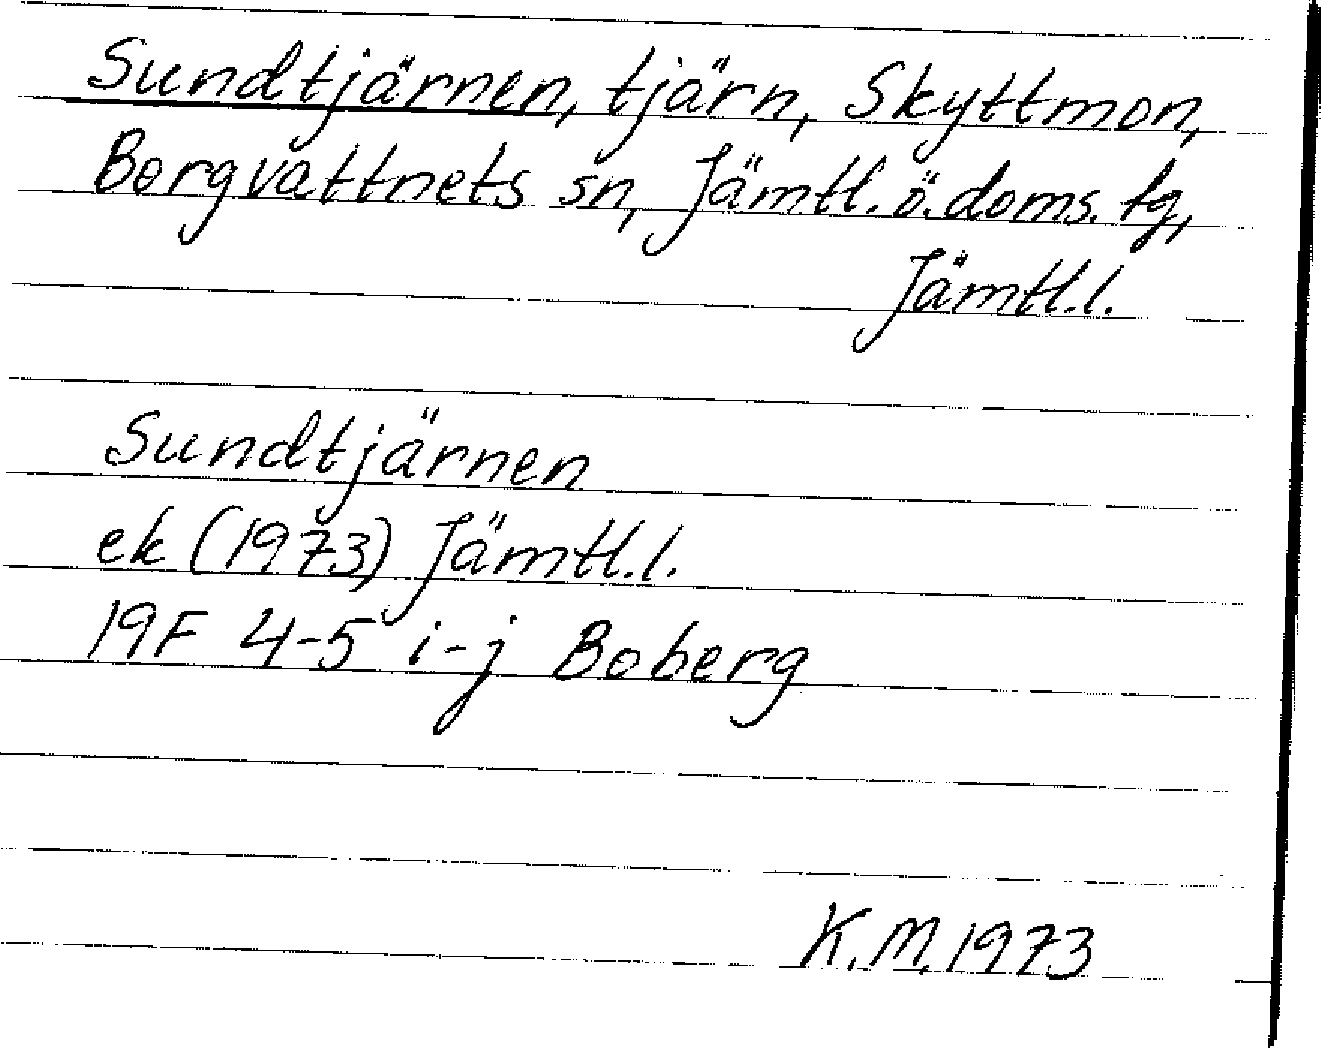 Sundtjärnen, tjärn, Skyttmon,
Borgvattnets sn, Jämtl. ö. doms. tg,
Jämtl. l.
Sundtjärnen
ek (1973) Jämtl. l.
19F 4-5 i-j Boberg
K.M. 1973